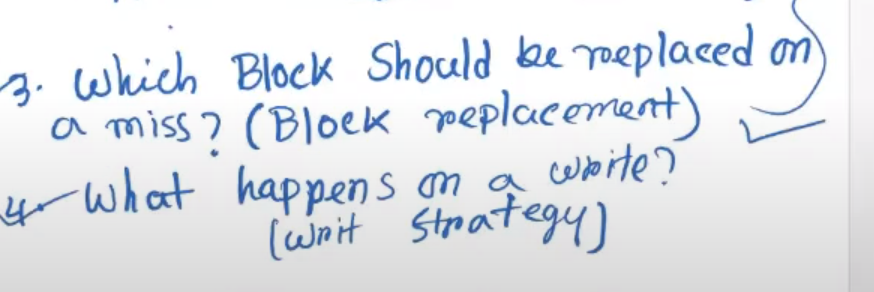 3. Which Block Should be replaced on
a miss? (Block replacement)
4. What happens on a write?
(Writ Strategy)